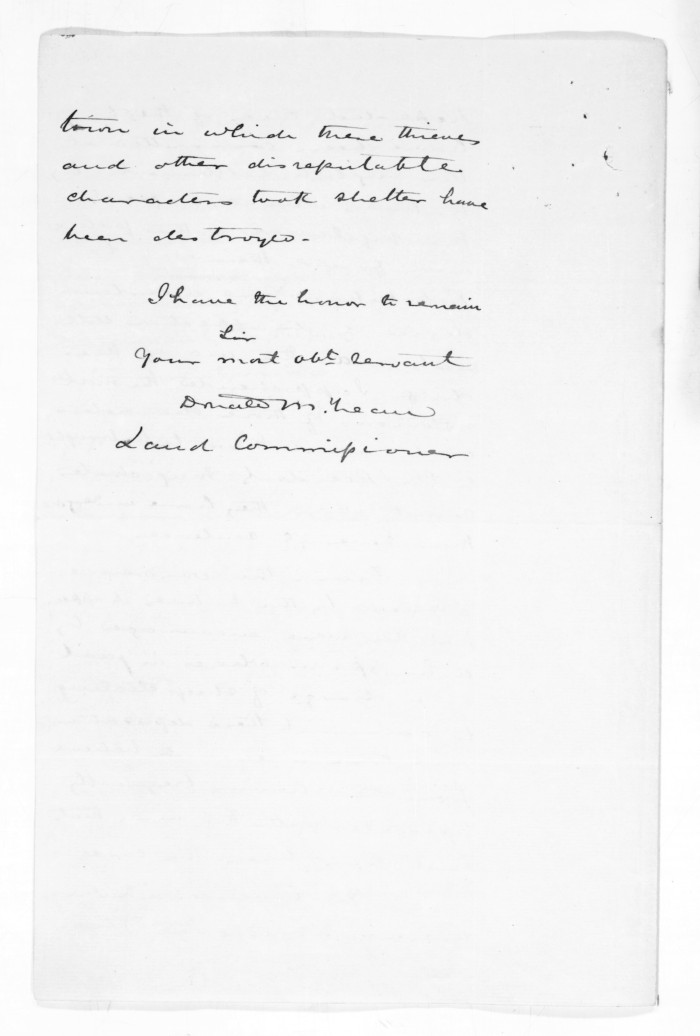 town in which these thieves
and other disreputable
characters took shelter have
been destroyed.
I have the honor to remain
Sir
Your most obt. servant
Donald McLean
Land Commissioner